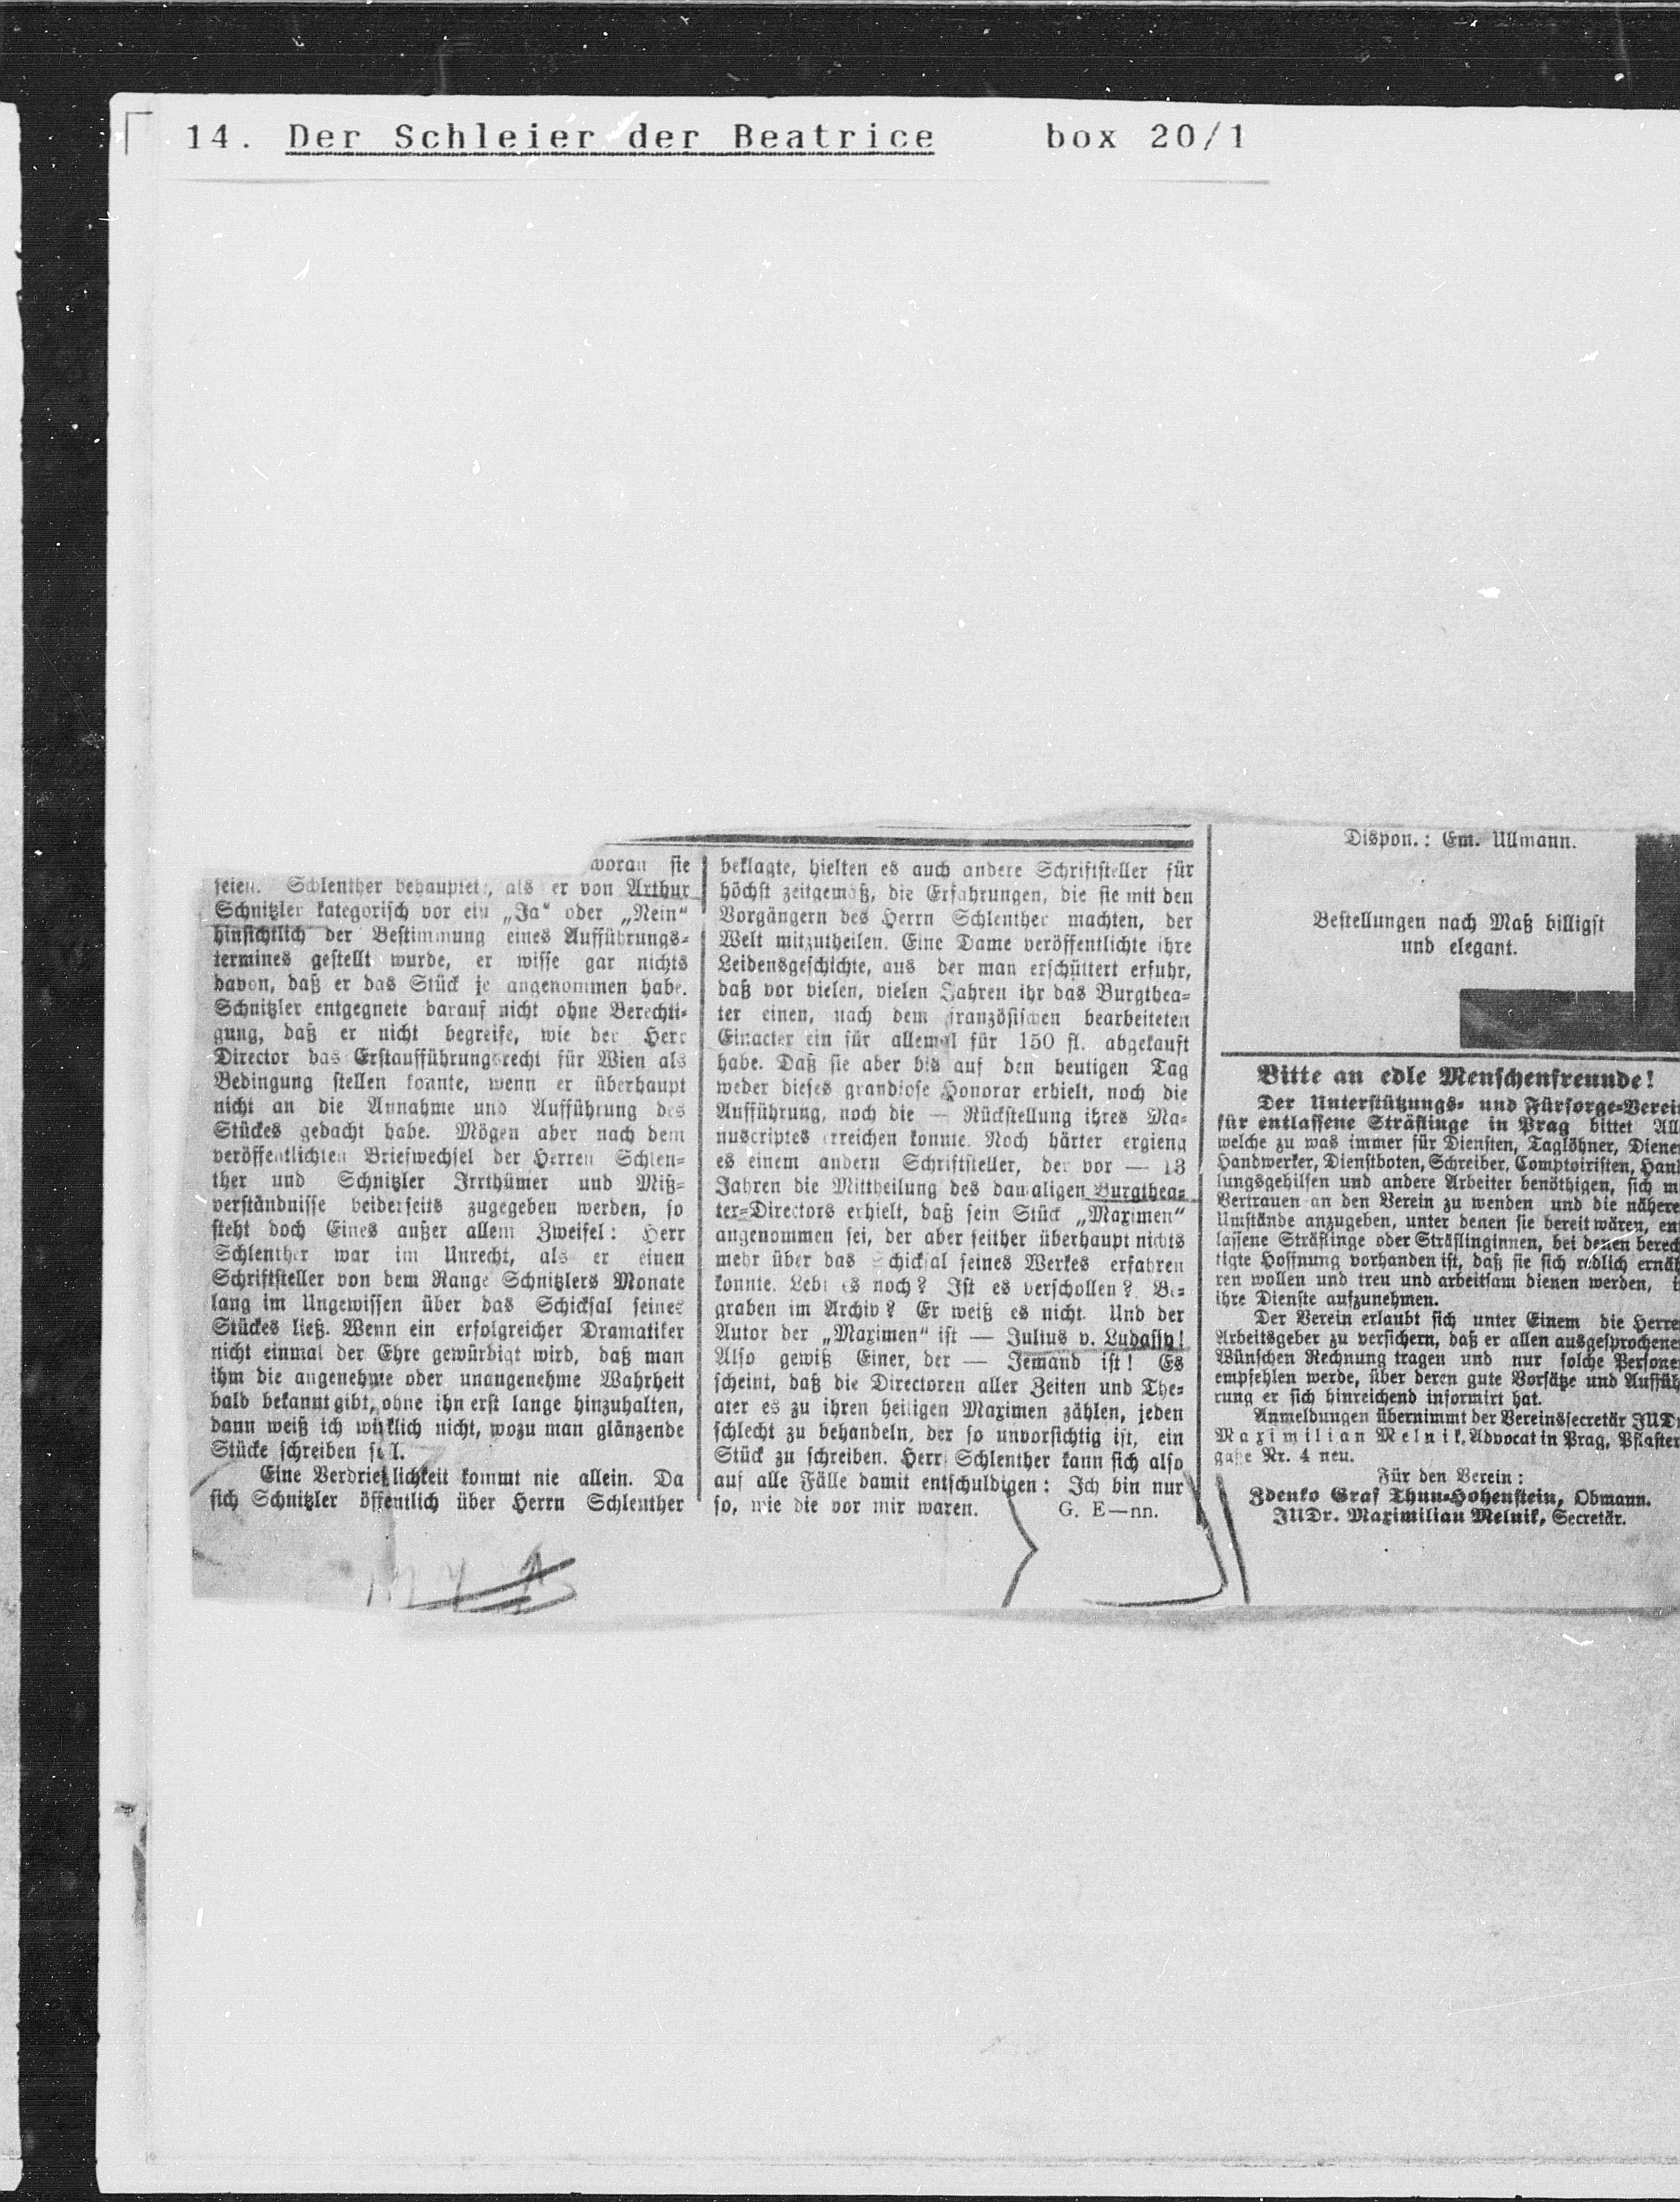 14. Der Schleier der Beatrice box 20/1
woran sie
seien. Schlenther behauptete, als er von Arthur
Schnitzler kategorisch vor ein „Ja“ oder „Nein“
hinsichtlich der Bestimmung eines Aufführungs-
termines gestellt wurde, er wisse gar nichts
davon, daß er das Stück je angenommen habe.
Schnitzler entgegnete darauf nicht ohne Berechti-
gung, daß er nicht begreife, wie der Herr
Director das Erstaufführungsrecht für Wien als
Bedingung stellen konnte, wenn er überhaupt
nicht an die Annahme und Aufführung des
Stückes gedacht habe. Mögen aber nach dem
veröffentlichten Briefwechsel der Herren Schlen-
ther und Schnitzler Irrthümer und Miß-
verständnisse beiderseits zugegeben werden, so
steht doch Eines außer allem Zweifel: Herr
Schlenther war im Unrecht, als er einen
Schriftsteller von dem Range Schnitzlers Monate
lang im Ungewissen über das Schicksal seines
Stückes ließ. Wenn ein erfolgreicher Dramatiker
nicht einmal der Ehre gewürdigt wird, daß man
ihm die angenehme oder unangenehme Wahrheit
bald bekannt gibt, ohne ihn erst lange hinzuhalten,
dann weiß ich wirklich nicht, wozu man glänzende
Stücke schreiben soll.
Eine Verdrießlichkeit kommt nie allein. Da
sich Schnitzler öffentlich über Herrn Schlenther
beklagte, hielten es auch andere Schriftsteller für
höchst zeitgemäß, die Erfahrungen, die sie mit den
Vorgängern des Herrn Schlenther machten, der
Welt mitzutheilen. Eine Dame veröffentlichte ihre
Leidensgeschichte, aus der man erschüttert erfuhr,
daß vor vielen, vielen Jahren ihr das Burgthea-
ter einen, nach dem französischen bearbeiteten
Einacter ein für allemal für 150 fl. abgekauft
habe. Daß sie aber bis auf den heutigen Tag
weder dieses grandiose Honorar erhielt, noch die
Aufführung, noch die — Rückstellung ihres Ma-
nuscriptes erreichen konnte. Noch härter ergieng
es einem andern Schriftsteller, der vor — 13
Jahren die Mittheilung des damaligen Burgthea-
ter-Directors erhielt, daß sein Stück „Maximen“
angenommen sei, der aber seither überhaupt nichts
mehr über das Schicksal seines Werkes erfahren
konnte. Lebt es noch? Ist es verschollen? Be-
graben im Archiv? Er weiß es nicht. Und der
Autor der „Maximen“ ist — Julius v. Ludassy!
Also gewiß Einer, der — Jemand ist! Es
scheint, daß die Directoren aller Zeiten und The-
ater es zu ihren heiligen Maximen zählen, jeden
schlecht zu behandeln, der so unvorsichtig ist, ein
Stück zu schreiben. Herr Schlenther kann sich also
auf alle Fälle damit entschuldigen: Ich bin nur
so, wie die vor mir waren. G. E—nn.
Dispon.: Em. Ullmann.
Bestellungen nach Maß billigst
und elegant.
Bitte an edle Menschenfreunde!
Der Unterstützungs- und Fürsorge-Verei
für entlassene Sträflinge in Prag bittet All
welche zu was immer für Diensten, Taglöhner, Diene
Handwerker, Dienstboten, Schreiber, Comptoiristen, Han
lungsgehilfen und andere Arbeiter benöthigen, sich m
Vertrauen an den Verein zu wenden und die nähere
Umstände anzugeben, unter denen sie bereit wären, en
lassene Sträflinge oder Sträflinginnen, bei denen berec
tigte Hoffnung vorhanden ist, daß sie sich redlich ernäh
ren wollen und treu und arbeitsam dienen werden,
ihre Dienste aufzunehmen.
Der Verein erlaubt sich unter Einem die Herre
Arbeitsgeber zu versichern, daß er allen ausgesprochene
Wünschen Rechnung tragen und nur solche Persone
empfehlen werde, über deren gute Vorsätze und Auffüh
rung er sich hinreichend informirt hat.
Anmeldungen übernimmt der Vereinssecretär JUD
Maximilian Melnik, Advocat in Prag, Pflaster
gasse Nr. 4 neu.
Für den Verein:
Zdenko Graf Thun-Hohenstein, Obmann.
JUDr. Maximilian Melnik, Secretär.